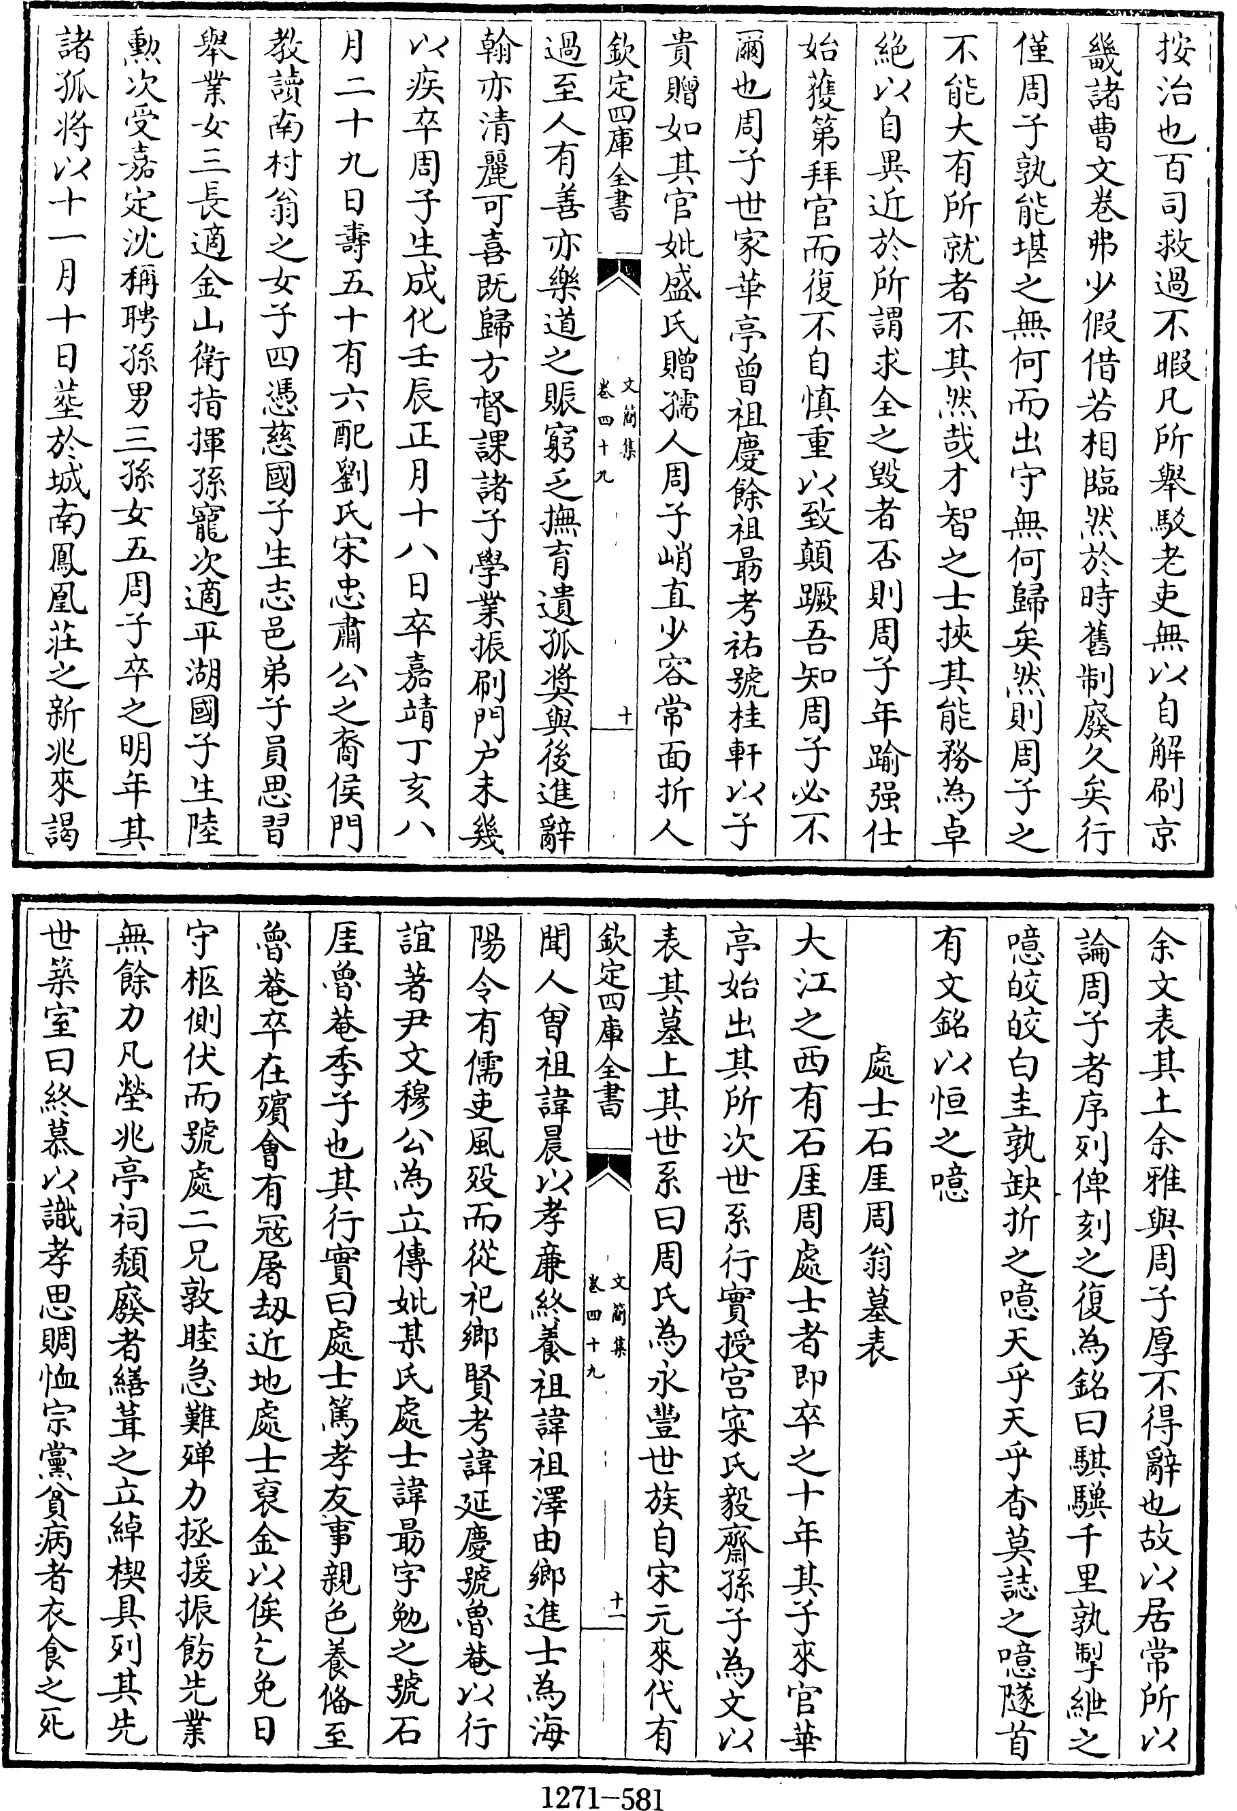 按治也百司救過不暇凡所舉駁老吏無以自解刷京
畿諸曹文卷弗少假借若相臨然於時舊制廢久矣行
僅周子孰能堪之無何而出守無何歸矣然則周子之
不能大有所就者不其然哉才智之士挾其能務為卓
絶以自異近於所謂求全之毀者否則周子年踰强仕
始獲第拜官而復不自慎重以致顛蹶吾知周子必不
爾也周子世家華亭曾祖慶餘祖最考祐號桂軒以子
貴贈如其官妣盛氏贈孺人周子峭直少容常面折人
欽定四庫全書
文簡集
卷四十九
十
過至人有善亦樂道之賑窮乏撫育遺孤奬與後進辭
翰亦清麗可喜既歸方督課諸子學業振刷門户未幾
以疾卒周子生成化壬辰正月十八日卒嘉靖丁亥八
月二十九日壽五十有六配劉氏宋忠肅公之裔侯門
教讀南村翁之女子四憑慈國子生志邑弟子員思習
舉業女三長適金山衛指揮孫寵次適平湖國子生陸
勲次受嘉定沈稱聘孫男三孫女五周子卒之明年其
諸孤將以十一月十日塟於城南鳳凰莊之新兆來謁
余文表其上余雅與周子厚不得辭也故以居常所以
論周子者序列俾刻之復為銘曰騏驥千里孰掣紲之
噫皎皎白圭孰缺折之噫天乎天乎杳莫誌之噫隧首
有文銘以恒之噫
處士石厓周翁墓表
大江之西有石厓周處士者即卒之十年其子來官華
亭始出其所次世系行實授宫寀氏毅齋孫子為文以
表其墓上其世系曰周氏為永豐世族自宋元來代有
欽定四庫全書
文簡集
卷四十九
十一
聞人曾祖諱晨以孝亷終養祖諱祖澤由鄉進士為海
陽令有儒吏風殁而從祀鄉賢考諱延慶號魯菴以行
誼著尹文穆公為立傳妣某氏處士諱最字勉之號石
厓魯菴季子也其行實曰處士篤孝友事親色養俻至
魯菴卒在殯會有冦屠刼近地處士裒金以俟乞免日
守柩側伏而號處二兄敦睦急難殫力拯援振飭先業
無餘力凡塋兆亭祠頽廢者繕葺之立綽楔具列其先
世築室曰終慕以識孝思賙恤宗黨貧病者衣食之死
1271-581